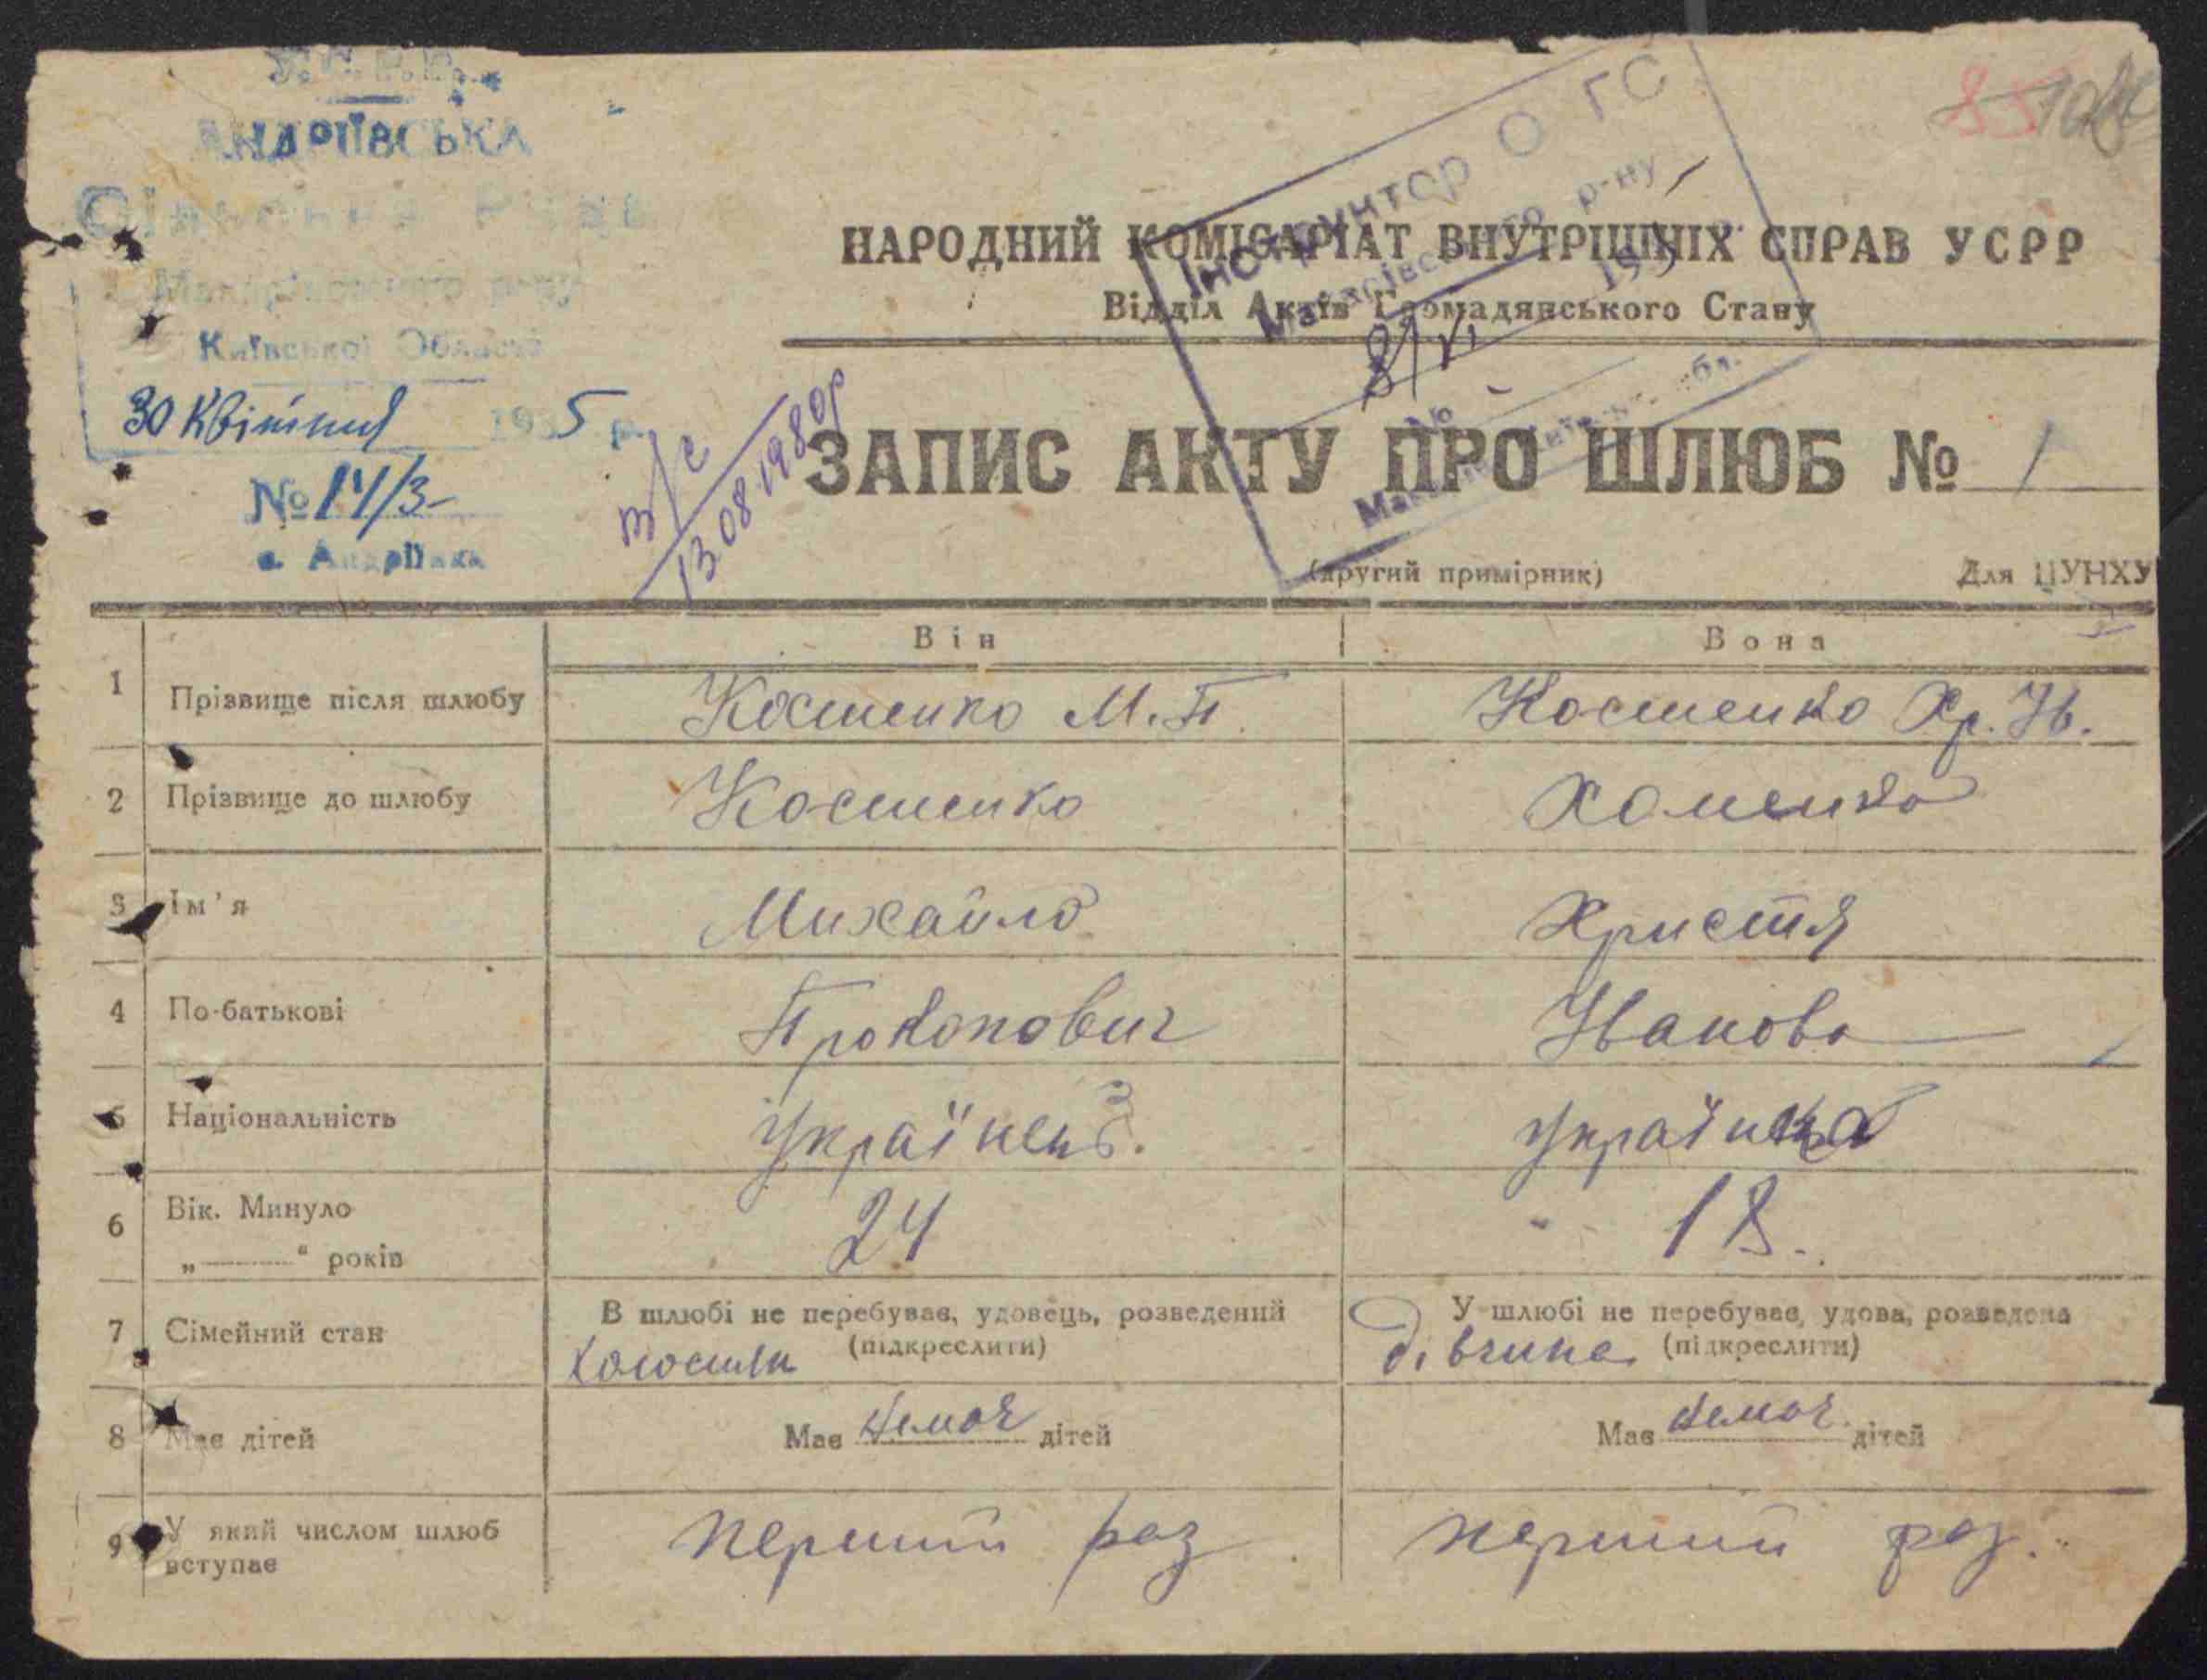 У.С.Р.Р.
АНДРІЇВСЬКА
Сільська Рада
Макарівського р-ну
Київської Області
30 Квітня 1935 р.
№ 14/3
с. Андріївка
13.08.1980р
Інструктор О ГС
Макарівського р-ну
8/VI 193
НАРОДНИЙ КОМІСАРІАТ ВНУТРІШНІХ СПРАВ УСРР
Відділ Актів Громадянського Стану
ЗАПИС АКТУ ПРО ШЛЮБ № 1
(другий примірник) Для ЦУНХУ
Він Вона
1 Прізвище після шлюбу Костенко М.П. Костенко Хр. Ів.
2 Прізвище до шлюбу Костенко Хоменко
3 Ім'я Михайло Христя
4 По-батькові Прокопович Іванова
5 Національність Українець. Українка
6 Вік. Минуло „ “ років 24 18.
7 Сімейний стан В шлюбі не перебуває, удовець, розведений У шлюбі не перебуває, удова, розведена
(підкреслити) дівчина (підкреслити)
8 Має дітей Має Немає дітей Має Немає дітей
9 У який числом шлюб вступає перший раз перший раз.